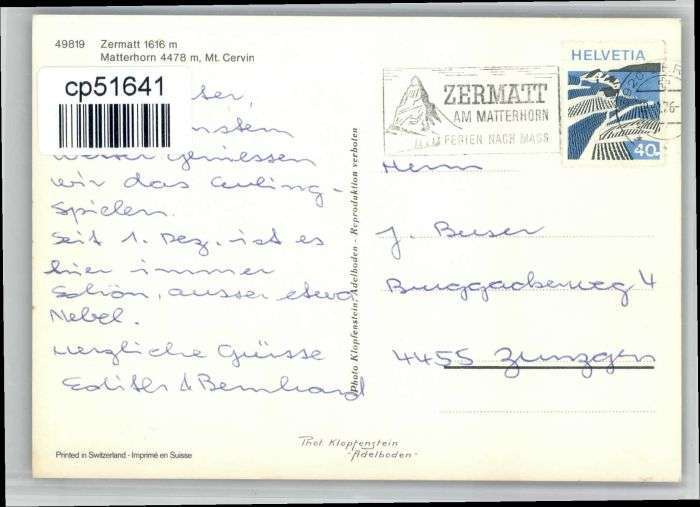 49819 Zermatt 1616 m
Matterhorn 4478 m, Mt. Cervin
cp51641
ser,
nstem
Wetter geniessen
wir das Curling-
Spielen.
Seit 1. Dez. ist es
hier immer
schön, ausser etwa
Nebel.
Herzliche Grüsse
Edith & Bernhard
Printed in Switzerland - Imprimé en Suisse
Photo Klopfenstein, Adelboden - Reproduktion verboten
Phot. Klopfenstein
-Adelboden-
ZERMATT
AM MATTERHORN
FERIEN NACH MASS
HELVETIA
40
Herrn
J. Buser
Burggackerweg 4
4455 Zunzgen